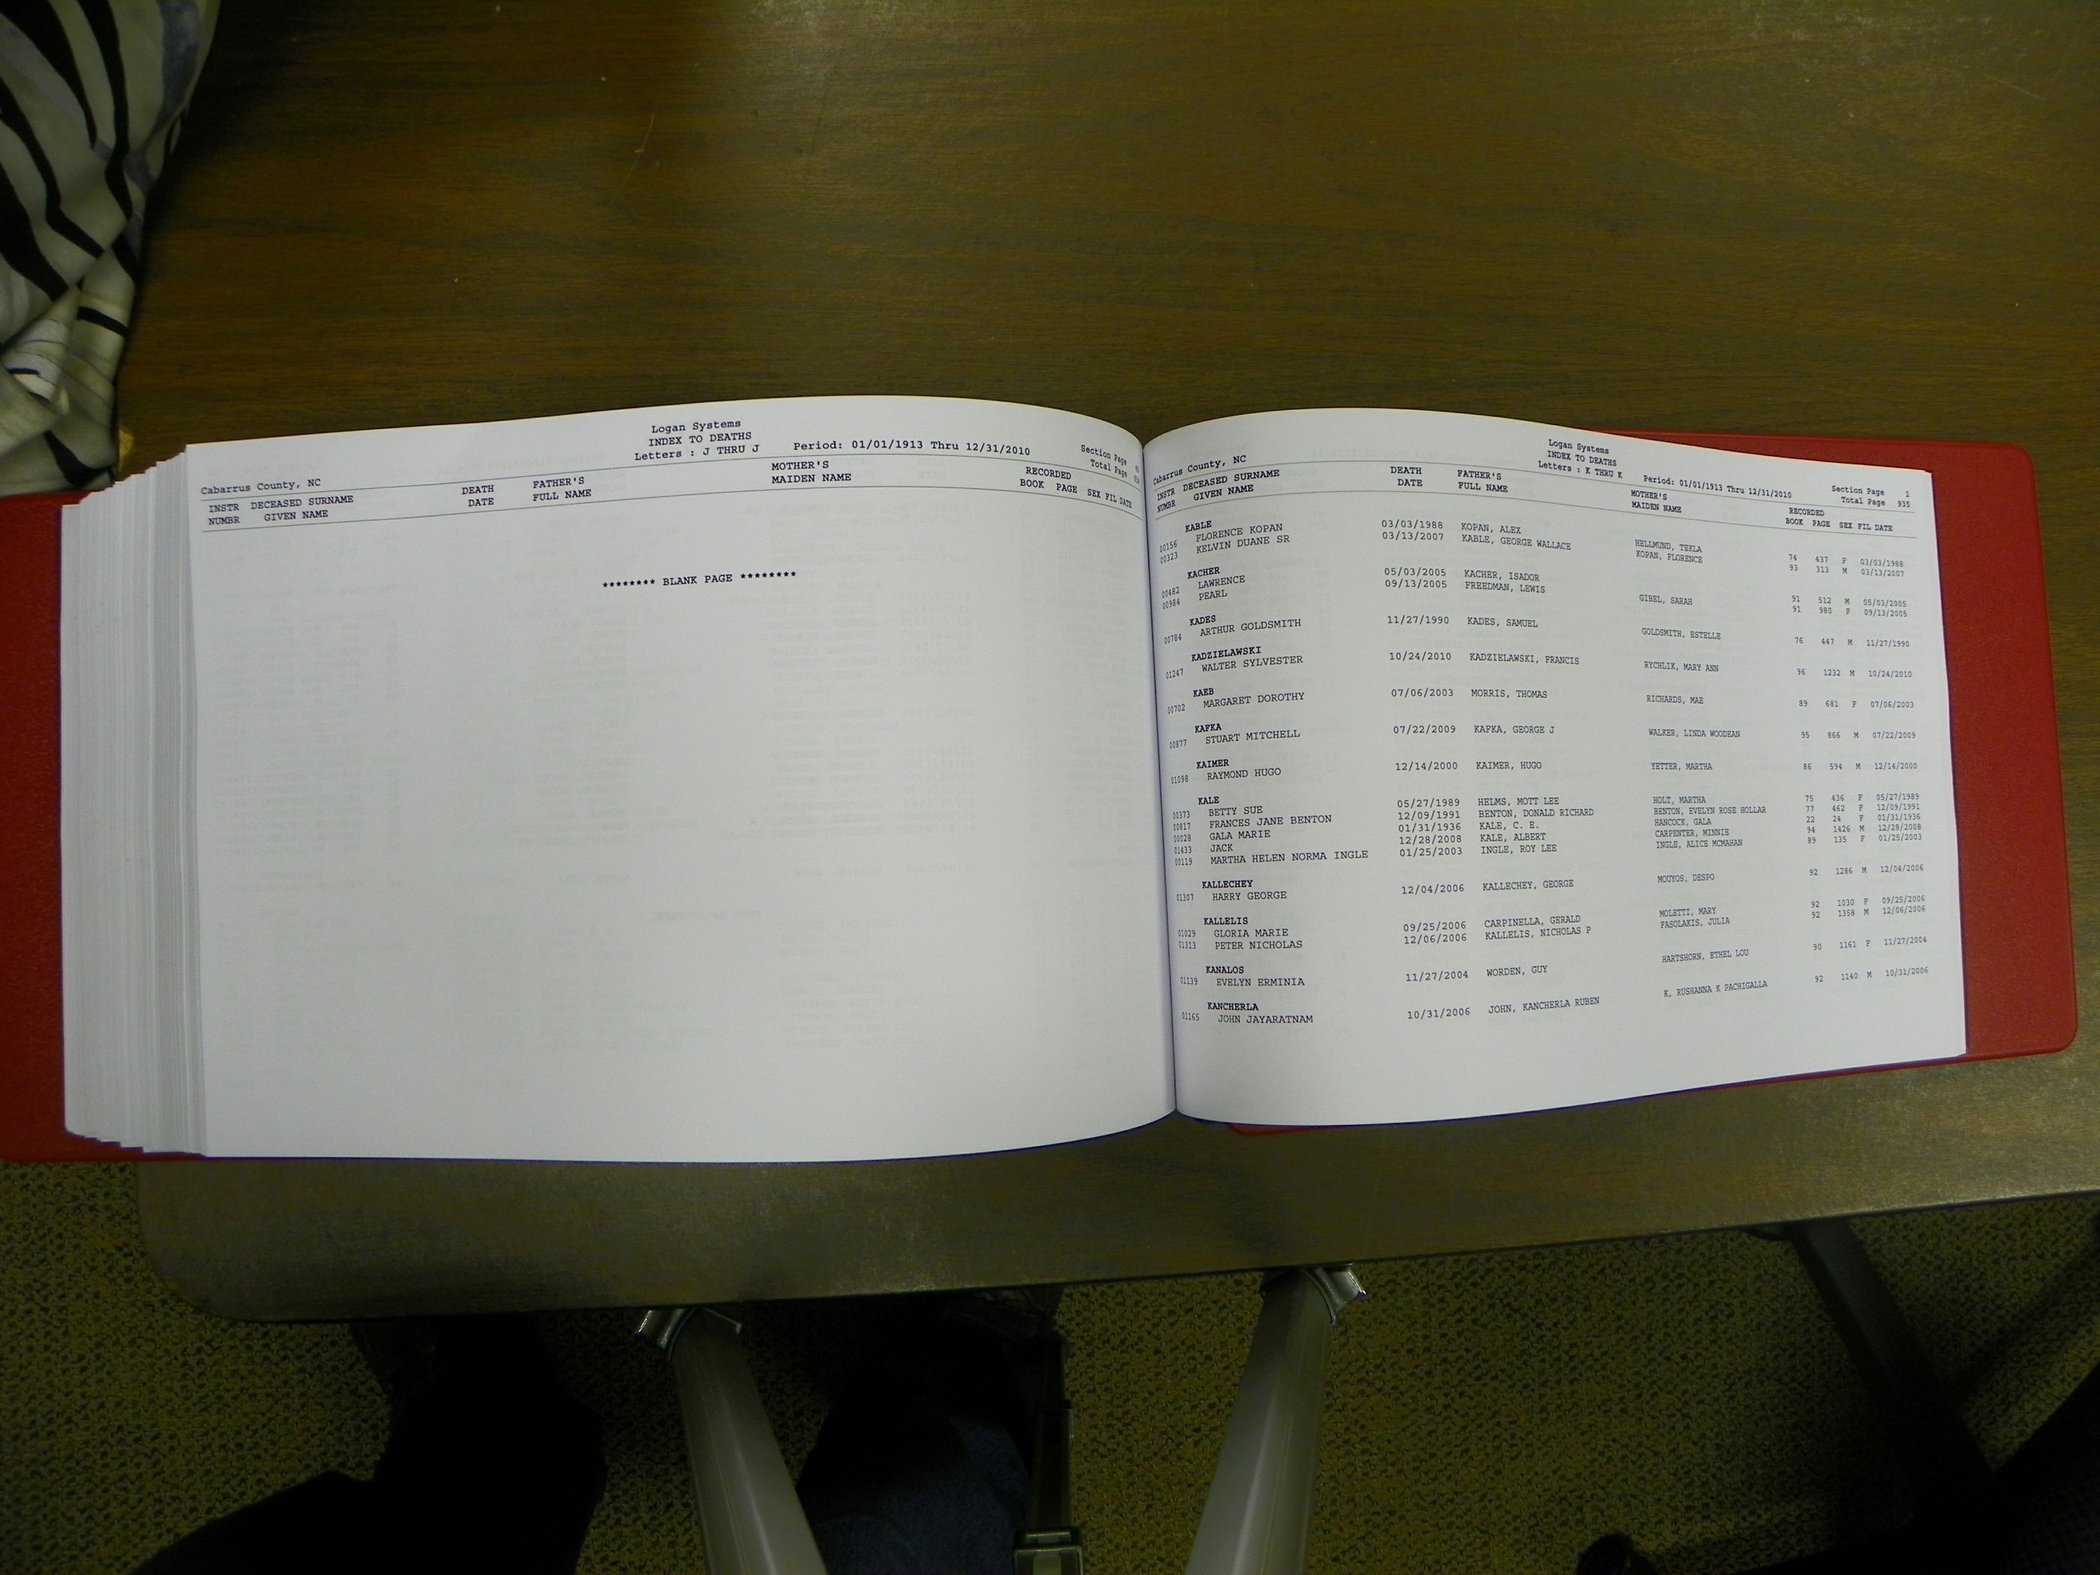 Logan Systems
INDEX TO DEATHS
Letters : J THRU J Period: 01/01/1913 Thru 12/31/2010 Section Page
Cabarrus County, NC Total Page
INSTR DECEASED SURNAME DEATH FATHER'S MOTHER'S RECORDED
NUMBR GIVEN NAME DATE FULL NAME MAIDEN NAME BOOK PAGE SEX FIL DATE
******** BLANK PAGE ********
Logan Systems
INDEX TO DEATHS
Letters : K THRU K Period: 01/01/1913 Thru 12/31/2010 Section Page 1
Cabarrus County, NC Total Page 935
INSTR DECEASED SURNAME DEATH FATHER'S MOTHER'S RECORDED
NUMBR GIVEN NAME DATE FULL NAME MAIDEN NAME BOOK PAGE SEX FIL DATE
KABLE
00156 FLORENCE KOPAN 03/03/1988 KOPAN, ALEX HELLMUND, TEKLA 74 437 F 03/03/1988
00323 KELVIN DUANE SR 03/13/2007 KABLE, GEORGE WALLACE KOPAN, FLORENCE 93 313 M 03/13/2007
KACHER
00482 LAWRENCE 05/03/2005 KACHER, ISADOR GIBEL, SARAH 91 512 M 05/03/2005
00984 PEARL 09/13/2005 FREEDMAN, LEWIS 91 980 F 09/13/2005
KADES
00784 ARTHUR GOLDSMITH 11/27/1990 KADES, SAMUEL GOLDSMITH, ESTELLE 76 447 M 11/27/1990
KADZIELAWSKI
01247 WALTER SYLVESTER 10/24/2010 KADZIELAWSKI, FRANCIS RYCHLIK, MARY ANN 96 1232 M 10/24/2010
KAEB
00702 MARGARET DOROTHY 07/06/2003 MORRIS, THOMAS RICHARDS, MAE 89 681 F 07/06/2003
KAFKA
00877 STUART MITCHELL 07/22/2009 KAFKA, GEORGE J WALKER, LINDA WOODEAN 95 866 M 07/22/2009
KAIMER
01098 RAYMOND HUGO 12/14/2000 KAIMER, HUGO YETTER, MARTHA 86 594 M 12/14/2000
KALE
00373 BETTY SUE 05/27/1989 HELMS, MOTT LEE HOLT, MARTHA 75 436 F 05/27/1989
00817 FRANCES JANE BENTON 12/09/1991 BENTON, DONALD RICHARD BENTON, EVELYN ROSE HOLLAR 77 462 F 12/09/1991
00028 GALA MARIE 01/31/1936 KALE, C. E. HANCOCK, GALA 22 24 F 01/31/1936
01433 JACK 12/28/2008 KALE, ALBERT CARPENTER, MINNIE 94 1426 M 12/28/2008
00119 MARTHA HELEN NORMA INGLE 01/25/2003 INGLE, ROY LEE INGLE, ALICE MCMAHAN 89 135 F 01/25/2003
KALLECHEY
01307 HARRY GEORGE 12/04/2006 KALLECHEY, GEORGE MOUYOS, DESPO 92 1286 M 12/04/2006
KALLELIS
01029 GLORIA MARIE 09/25/2006 CARPINELLA, GERALD MOLETTI, MARY 92 1030 F 09/25/2006
01313 PETER NICHOLAS 12/06/2006 KALLELIS, NICHOLAS P FASOLAKIS, JULIA 92 1358 M 12/06/2006
KANALOS
01139 EVELYN ERMINIA 11/27/2004 WORDEN, GUY HARTSHORN, ETHEL LOU 90 1161 F 11/27/2004
KANCHERLA
01165 JOHN JAYARATNAM 10/31/2006 JOHN, KANCHERLA RUBEN K, RUSHANNA K PACHIGALLA 92 1140 M 10/31/2006